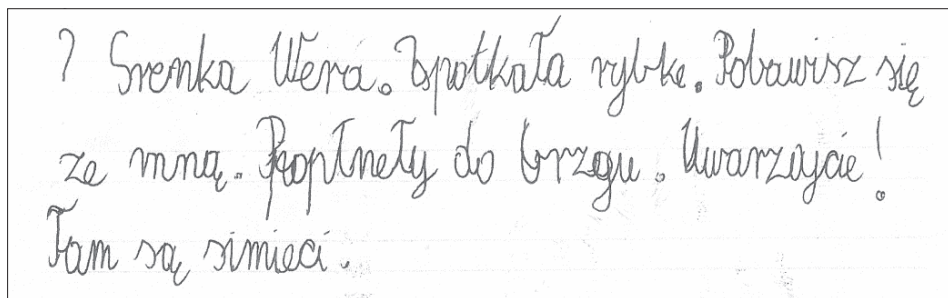 ? Srenka Wera. Zpotkała rybke. Pobawisz się
ze mną. Popłneły do brzgu. Uwarzajcie!
Tam są simieci.